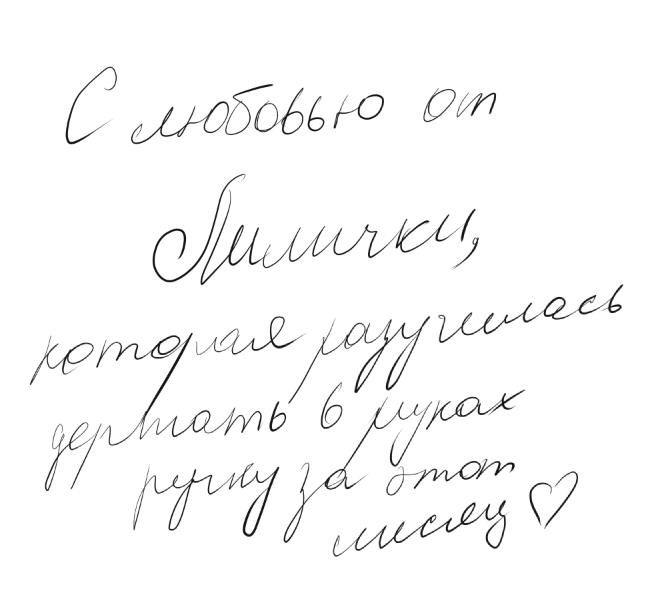 С любовью от
Лилички,
которая разучилась
держать в руках
ручку за этот
месяц ♡